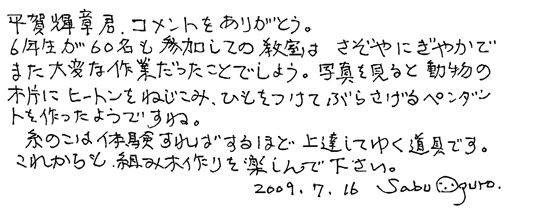 平賀輝章君、コメントをありがとう。
6年生が60名も参加しての教室は さぞやにぎやかで
また大変な作業だったことでしょう。写真を見ると動物の
木片にヒートンをねじこみ、ひもをつけてぶらさげるペンダン
トを作ったようですね。
糸のこは体験すればするほど上達してゆく道具です。
これからも、組み木作りを楽しんで下さい。
2009.7.16 Sabu Oguro.